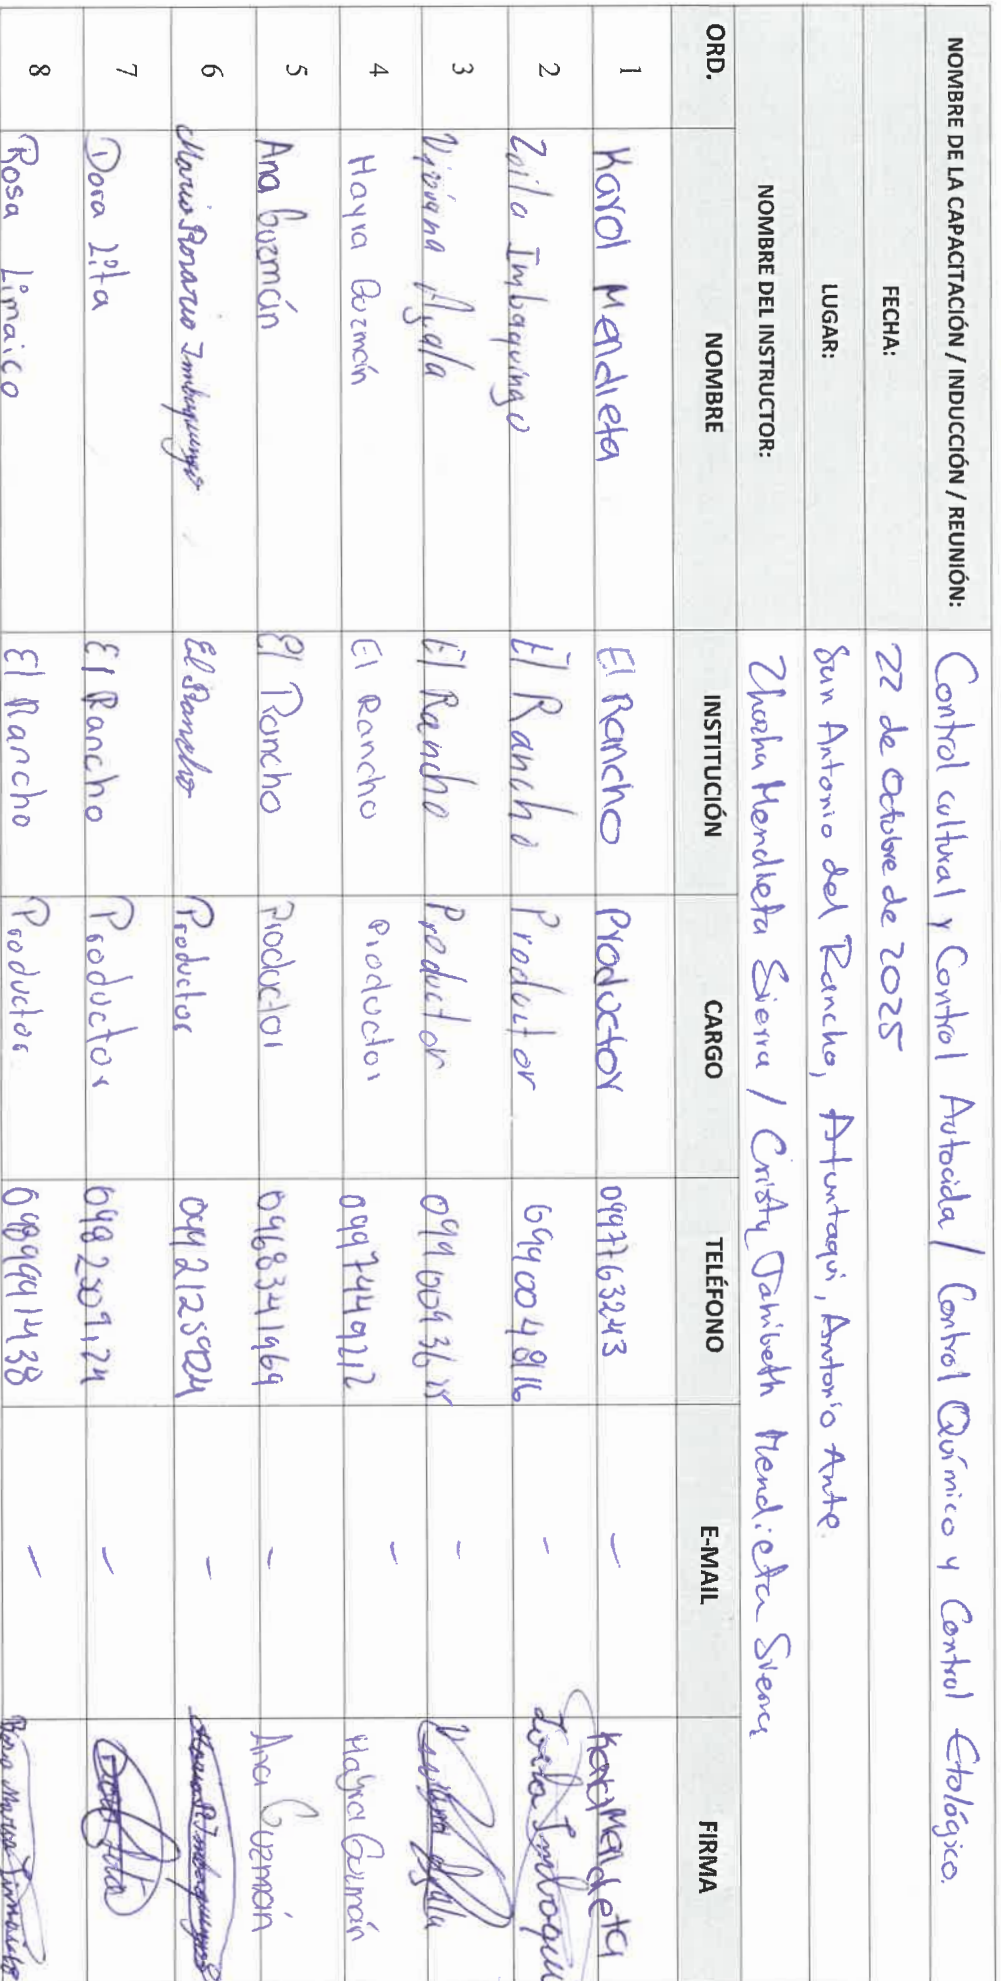 NOMBRE DE LA CAPACITACIÓN / INDUCCIÓN / REUNIÓN: Control cultural y Control Autocida / Control Químico y Control Etológico.
FECHA: 22 de Octubre de 2025
LUGAR: San Antonio del Rancho, Atuntaqui, Antonio Ante.
NOMBRE DEL INSTRUCTOR: Mendieta Sierra / Cristy Mendieta Sierra
ORD. NOMBRE INSTITUCIÓN CARGO TELÉFONO E-MAIL FIRMA
1 Karol Mendieta El Rancho Productor 0997763243 - Karol Mendieta
2 Zoila Imbaquingo El Rancho Productor - Imbaquin
3 Viviana Ayala El Rancho Productor -
4 Mayra Guzmán El Rancho Productor 0997449212 - Mayra Guzmán
5 Ana Guzmán El Rancho Productor 0968341969 - Ana Guzmán
6 Maria Rosario Imbaquingo El Rancho Productor -
7 Dora El Rancho Productor -
8 Rosa Limaico El Rancho Productor 0989991438 -